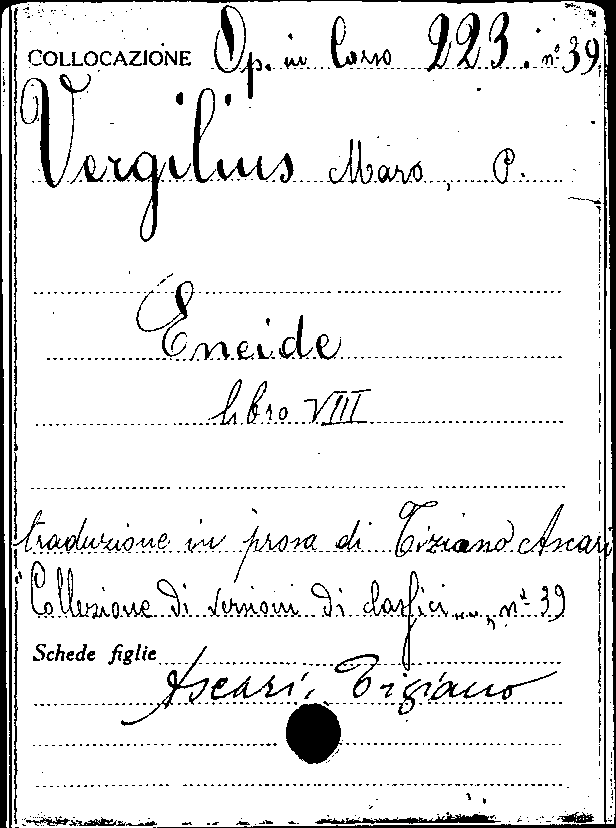 COLLOCAZIONE Op. in Corso 223. nº 39
Vergilius Maro, P.
Eneide
libro VIII
traduzione in prosa di Tiziano Ascari
Collezione di versioni di classici „ „ , nº 39
Schede figlie
Ascari, Tiziano